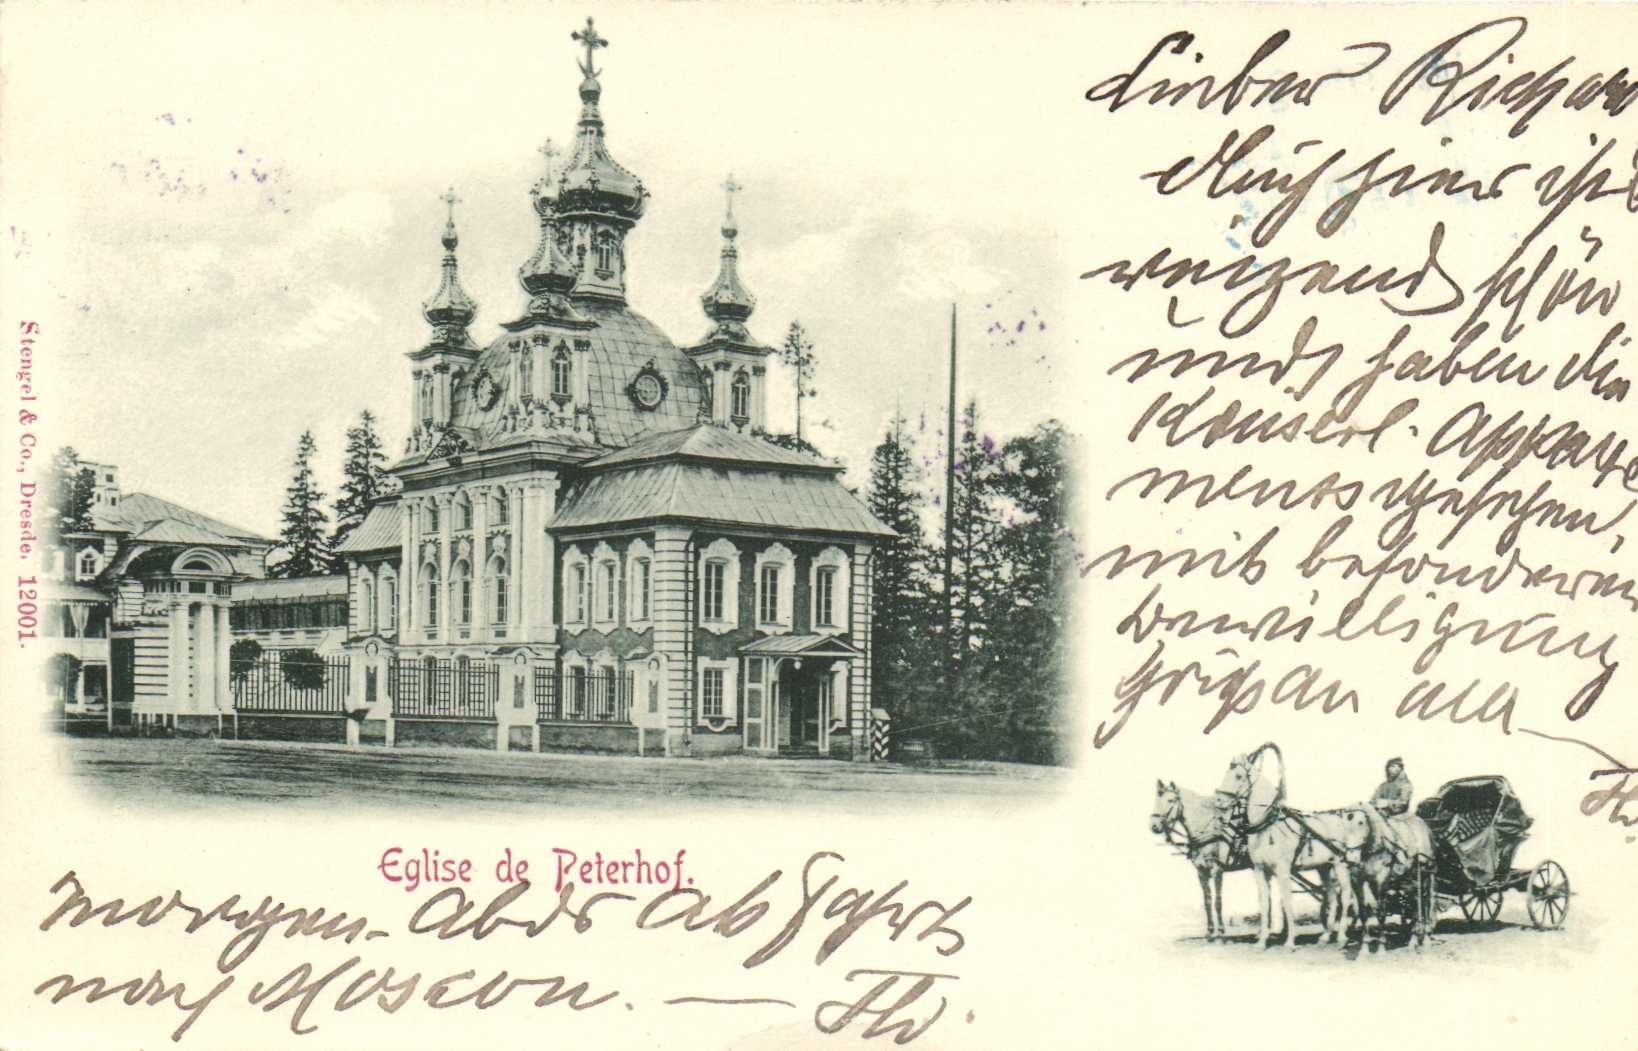 Lieber Richard
Auch hier ist
reizend schön
und haben die
Kaiserl. Appart
ments gesehen,
mit besonderer
Bewilligung
Grüße an alle
Th.
Stengel & Co., Dresde. 12001.
Eglise de Peterhof.
morgen Abds Abfahrt
nach Moscou. — Th.